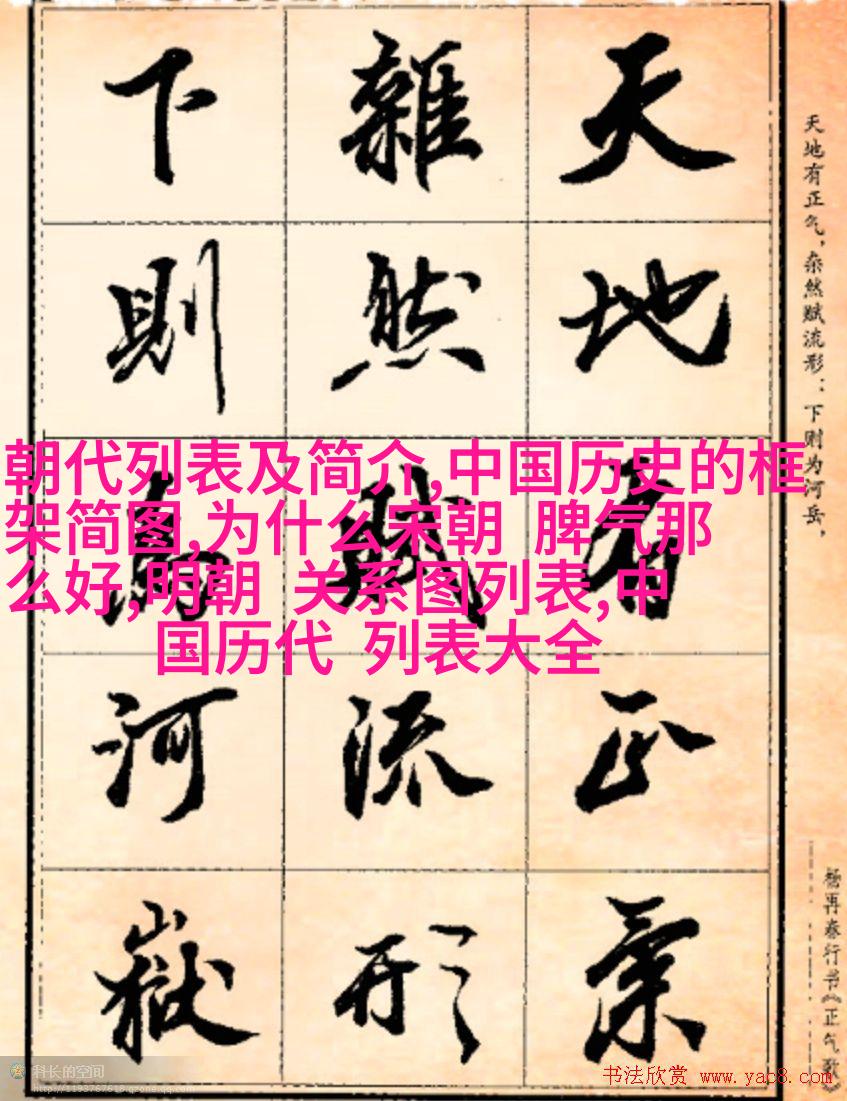 天地有正氣
雜然賦流形
下則為河嶽
天地有正气，杂然赋流形：下则为河岳，
杨再春行书《正气歌》
朝代列表及简介,中国历史的框
架简图,为什么宋朝 脾气那
么好,明朝 关系图列表,中
国历代 列表大全
科长的空间
http://1193767618.qzone.qq.com
书法欣赏 www.yac8.com